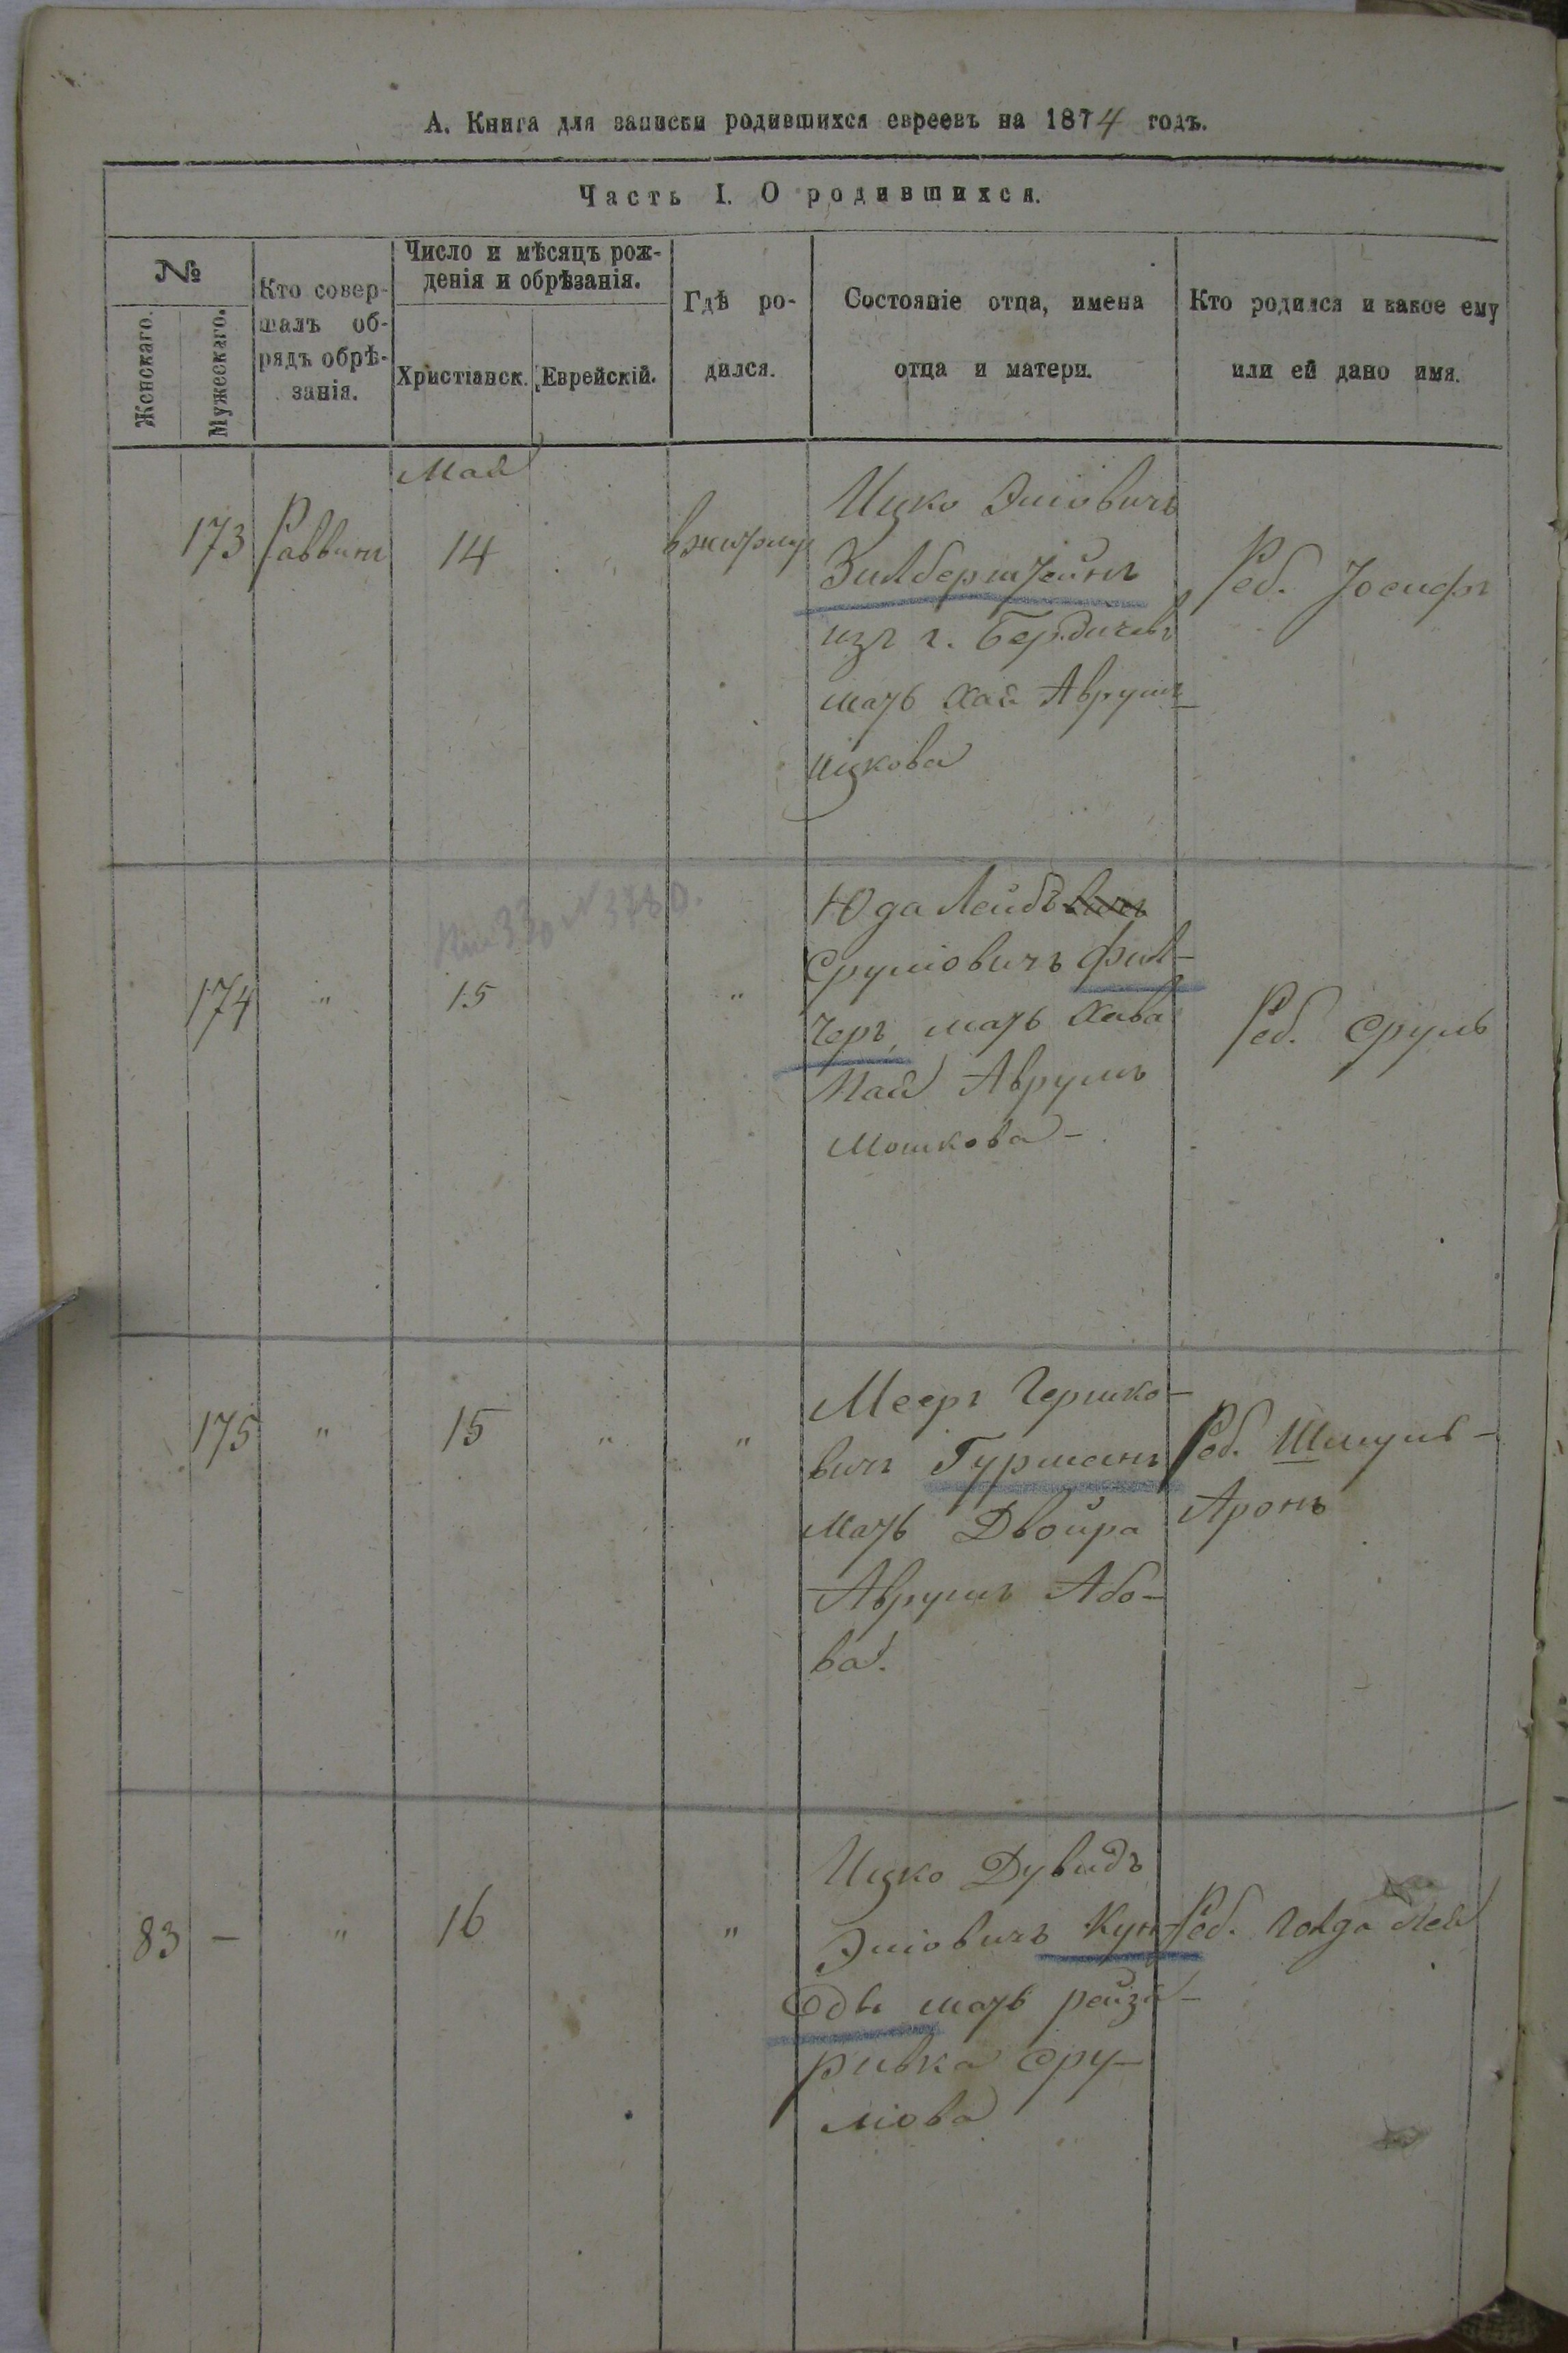 А. Книга для записки родившихся евреевъ на 1874 годъ.
Часть I. О родившихся.
№
Женскаго.
Мужескаго.
Кто совер-
шалъ об-
рядъ обрѣ-
занія.
Число и мѣсяцъ рож-
денія и обрѣзанія.
Христіанск.
Еврейскій.
Гдѣ ро-
дился.
Состояніе отца, имена
отца и матери.
Кто родился и какое ему
или ей дано имя.
Май
173
Раввинъ
14
Ицко Эліовичъ
Зилберштейнъ
изъ г. Бердичевъ
мать Хая Аврумъ
ицкова
Реб. Іосифъ
174
"
15
"
Юда Лейбъ
Сруліовичъ Фил-
черъ, мать Хава
Аврумъ
Мошкова -
Реб. Сруль
175
"
15
"
"
Мееръ Гершко-
вичъ Гурманъ
мать Двойра
Аврумъ Або-
ва.
Реб. Шмуль -
Аронъ
83
-
"
16
"
Ицко Дувидъ
Эліовичъ Кун-
мать рейза-
ривка Сру-
лiова
Реб. Голда Лея